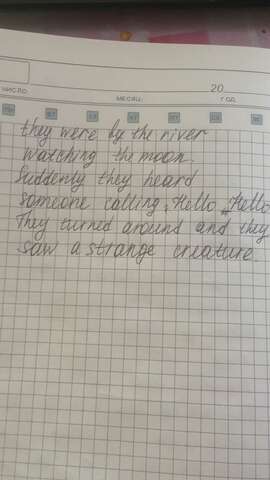 20
ЧИСЛО:
МЕСЯЦ:
ГОД
they were by the river
watching the moon.
Suddenly they heard
someone calling, Hello, Hello
They turned around and they
saw a strange creature.